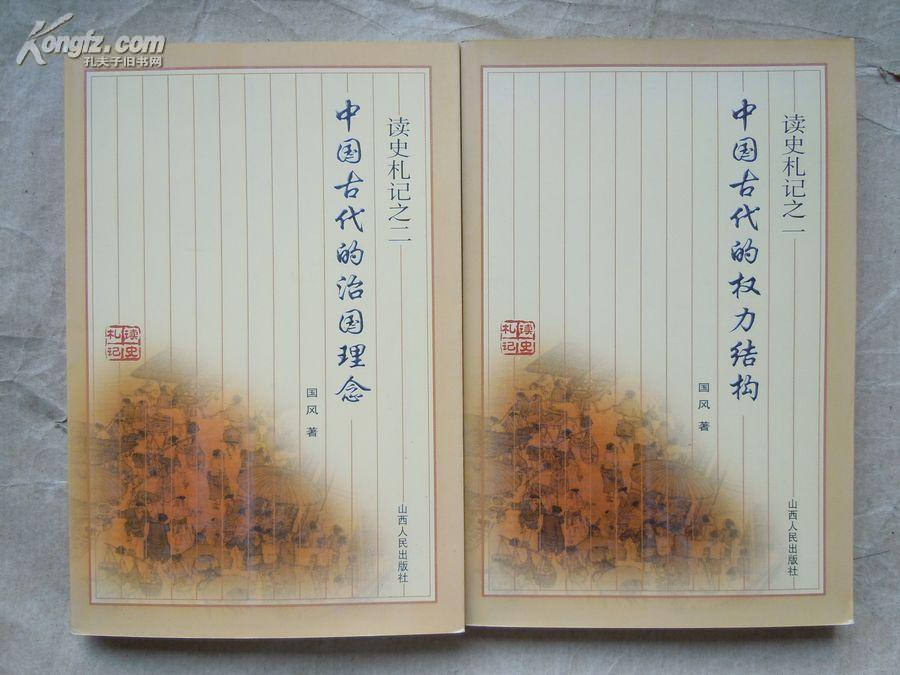 Kongfz.com
孔夫子旧书网
读史札记之二
中国古代的治国理念
读史札记
国风 著
山西人民出版社
读史札记之一
中国古代的权力结构
读史札记
国风 著
山西人民出版社